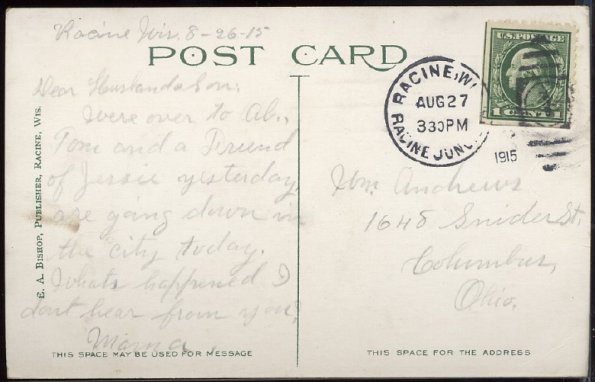 Racine Wis. 8-26-15
POST CARD
U.S. POSTAGE
1 CENT 1
RACINE, WI
AUG 27
330PM
RACINE JUNC.
1915
Dear Husband & Son:
Were over to Ab.,
Tom and a Friend
of Jessie yesterday,
are going down in
the city today.
Whats happened I
dont hear from you?
Mama.
Wm. Andrews
1648 Snider St.
Columbus,
Ohio.
E. A. BISHOP, PUBLISHER, RACINE, WIS.
THIS SPACE MAY BE USED FOR MESSAGE
THIS SPACE FOR THE ADDRESS